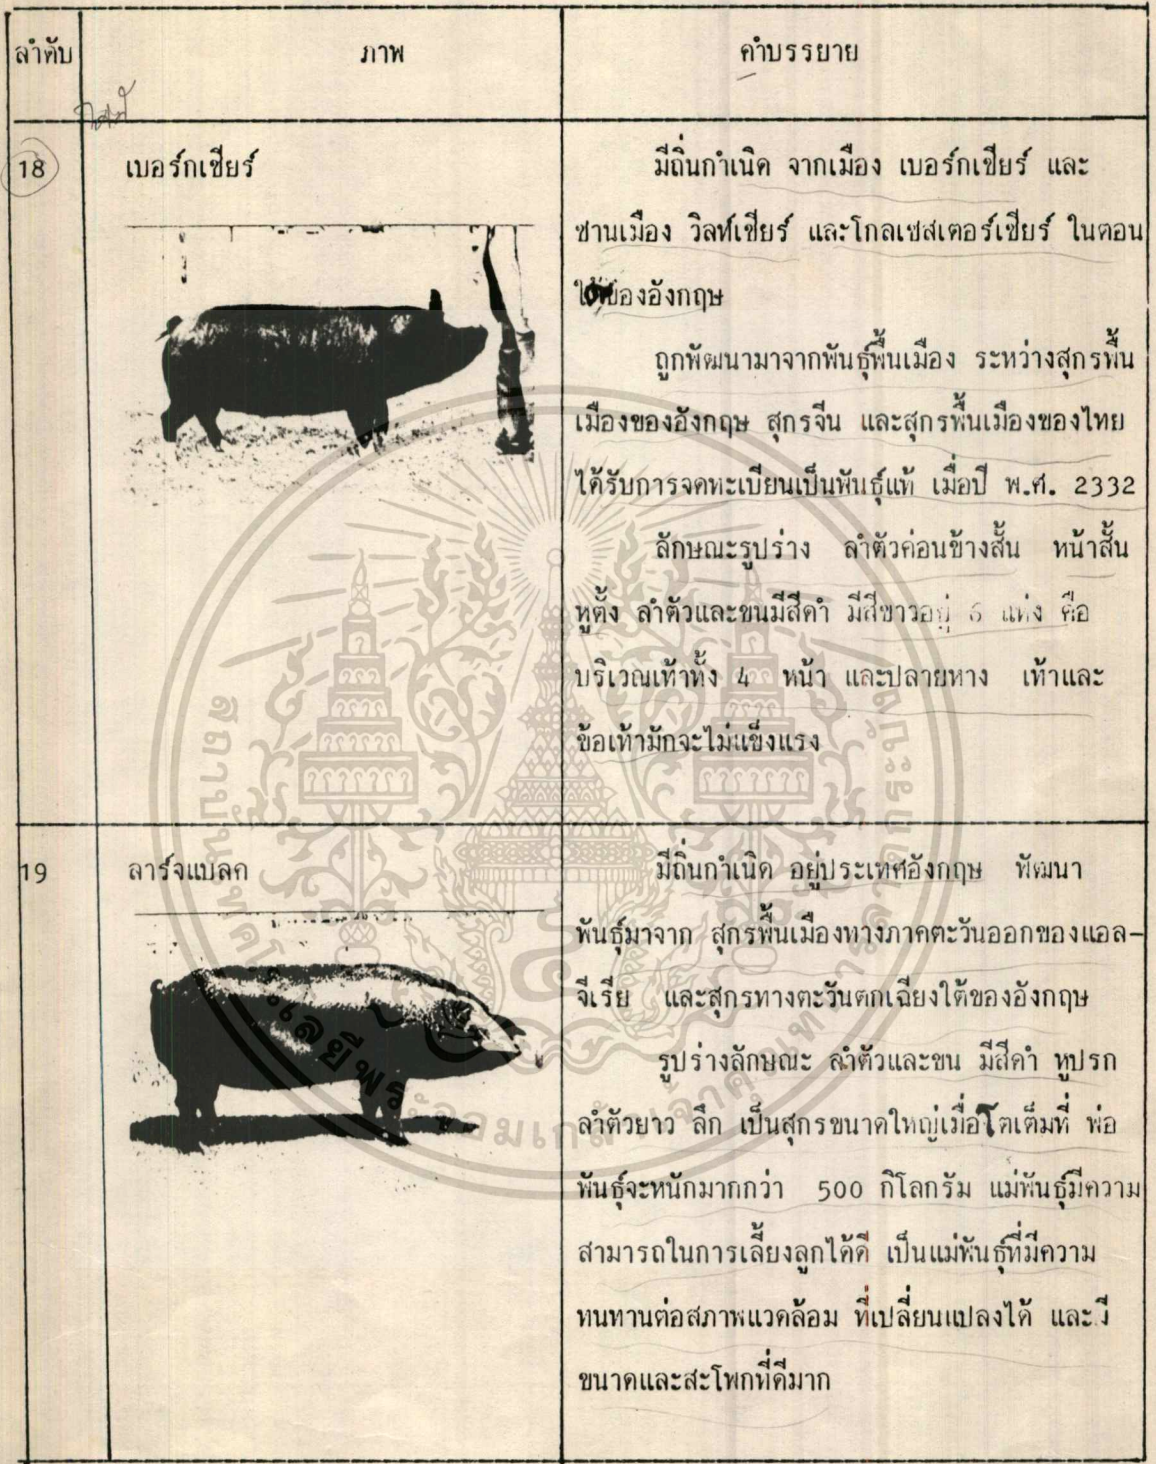 ลำดับ ภาพ คำบรรยาย
18 เบอร์กเชียร์ มีถิ่นกำเนิด จากเมือง เบอร์กเชียร์ และ
ชานเมือง วิลท์เชียร์ และโกลเชสเตอร์เชียร์ ในตอน
ใต้ของอังกฤษ
ถูกพัฒนามาจากพันธุ์พื้นเมือง ระหว่างสุกรพื้น
เมืองของอังกฤษ สุกรจีน และสุกรพื้นเมืองของไทย
ได้รับการจดทะเบียนเป็นพันธุ์แท้ เมื่อปี พ.ศ. 2332
ลักษณะรูปร่าง ลำตัวค่อนข้างสั้น หน้าสั้น
หูตั้ง ลำตัวและขนมีสีดำ มีสีขาวอยู่ 6 แห่ง คือ
บริเวณเท้าทั้ง 4 หน้า และปลายหาง เท้าและ
ข้อเท้ามักจะไม่แข็งแรง
19 ลาร์จแบลค มีถิ่นกำเนิด อยู่ประเทศอังกฤษ พัฒนา
พันธุ์มาจาก สุกรพื้นเมืองทางภาคตะวันออกของแอล-
จีเรีย และสุกรทางตะวันตกเฉียงใต้ของอังกฤษ
รูปร่างลักษณะ ลำตัวและขน มีสีดำ หูปรก
ลำตัวยาว ลึก เป็นสุกรขนาดใหญ่เมื่อโตเต็มที่ พ่อ
พันธุ์จะหนักมากกว่า 500 กิโลกรัม แม่พันธุ์มีความ
สามารถในการเลี้ยงลูกได้ดี เป็นแม่พันธุ์ที่มีความ
ทนทานต่อสภาพแวดล้อม ที่เปลี่ยนแปลงได้ และมี
ขนาดและสะโพกที่ดีมาก
สถาบันเทคโนโลยีพระจอมเกล้าเจ้าคุณทหารลาดกระบัง